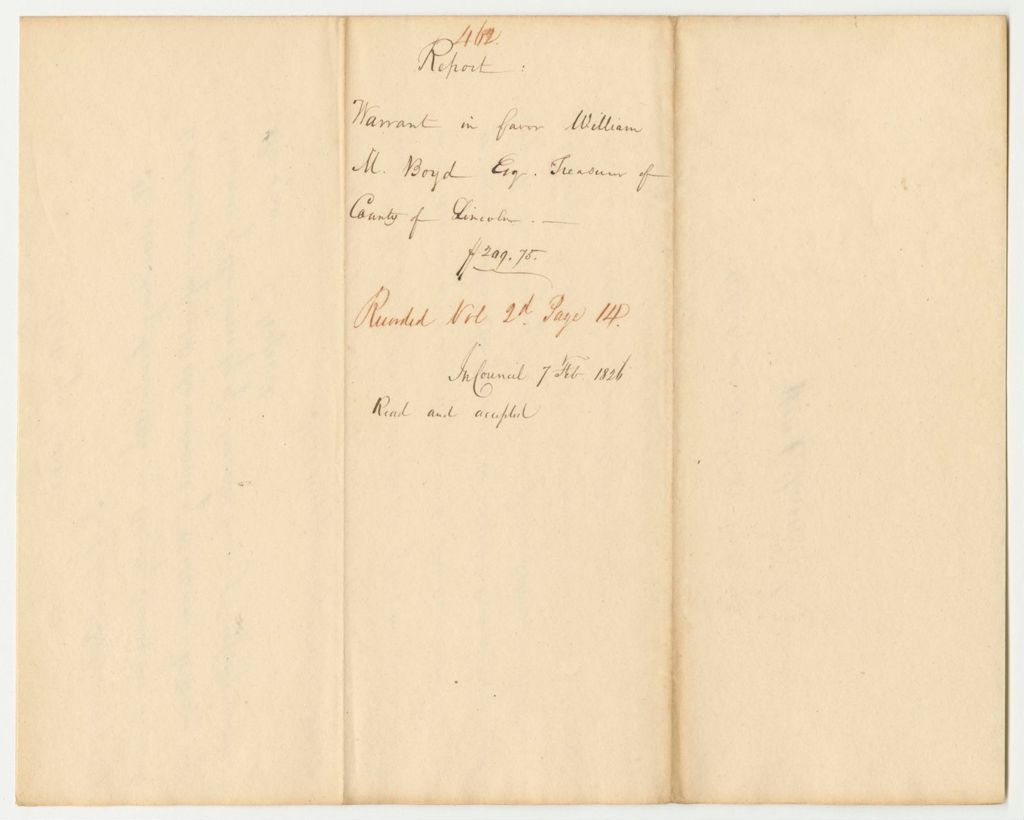 462.
Report :
Warrant in favor William
M. Boyd Esq. Treasurer of
County of Lincoln . —
$209.75.
Recorded Vol 2d. Page 14.
In Council 7 Feb. 1826
Read and accepted